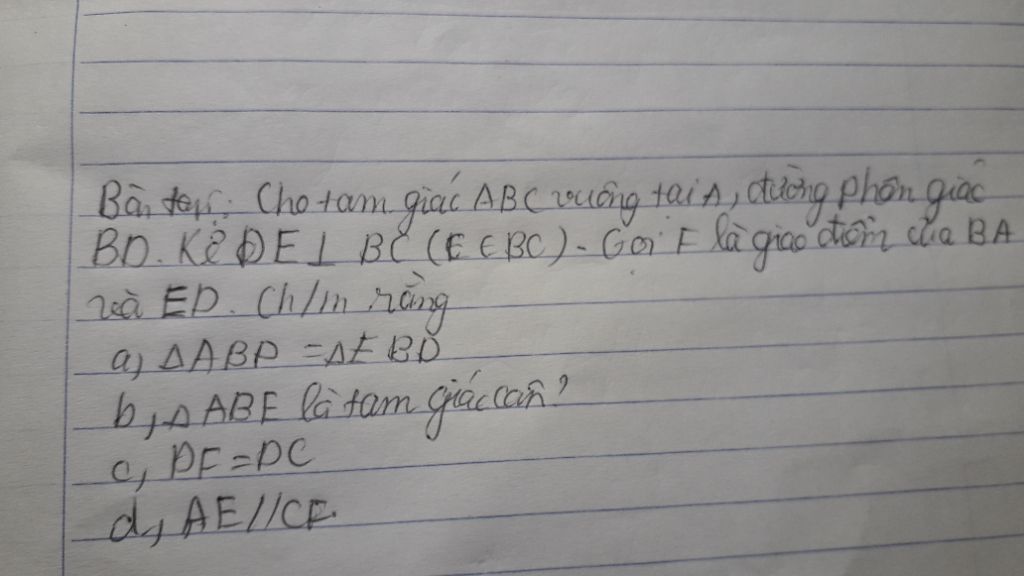 Bài tập: Cho tam giác ABC vuông tại A, đường phân giác
BD. Kẻ DE ⊥ BC (E ∈ BC). Gọi F là giao điểm của BA
và ED. Ch/m rằng
a, ΔABD = ΔEBD
b, ΔABE là tam giác cân?
c, DF = DC
d, AE//CF.